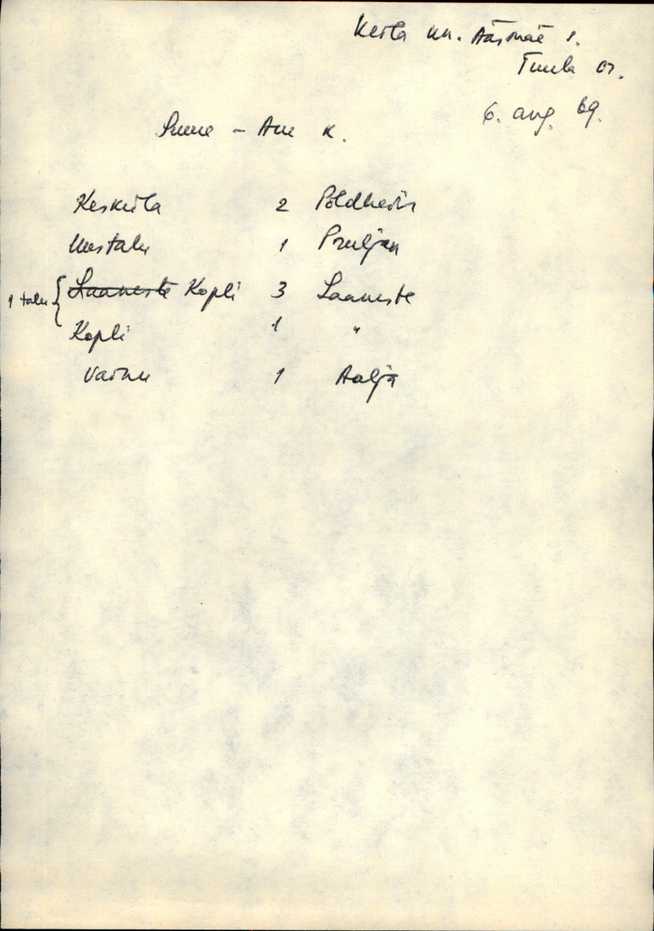 Keila khk. Ääsmäe v.
Tuula as.
6. aug. 69.
Suure - Aru k.
Keskküla 2 Põldhein
Uustalu 1 Pruljan
1 talu { Laaneste Kopli 3 Laaneste
Kopli 1 "
Vainu 1 Aalja